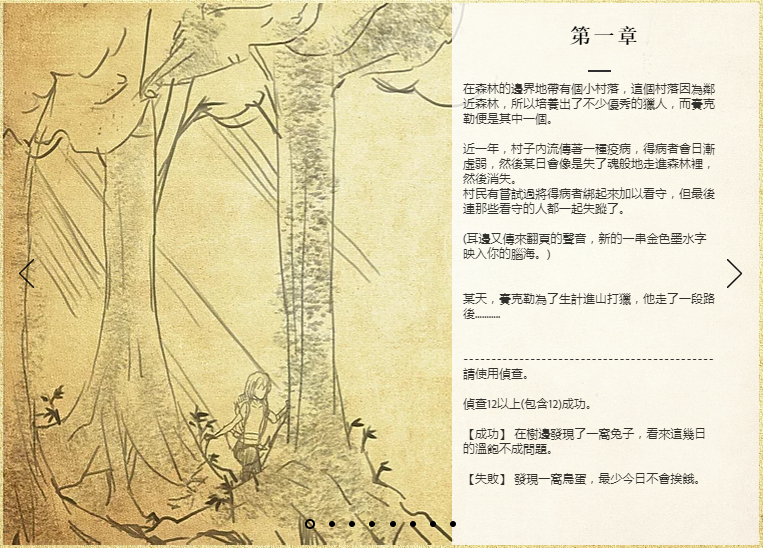 第一章
在森林的邊界地帶有個小村落，這個村落因為鄰
近森林，所以培養出了不少優秀的獵人，而賽克
勒便是其中一個。
近一年，村子內流傳著一種疫病，得病者會日漸
虛弱，然後某日會像是失了魂般地走進森林裡，
然後消失。
村民有嘗試過將得病者綁起來加以看守，但最後
連那些看守的人都一起失蹤了。
(耳邊又傳來翻頁的聲音，新的一串金色墨水字
映入你的腦海。)
某天，賽克勒為了生計進山打獵，他走了一段路
後...........
--------------------------------------------
請使用偵查。
偵查12以上(包含12)成功。
【成功】 在樹邊發現了一窩兔子，看來這幾日
的溫飽不成問題。
【失敗】 發現一窩鳥蛋，最少今日不會挨餓。